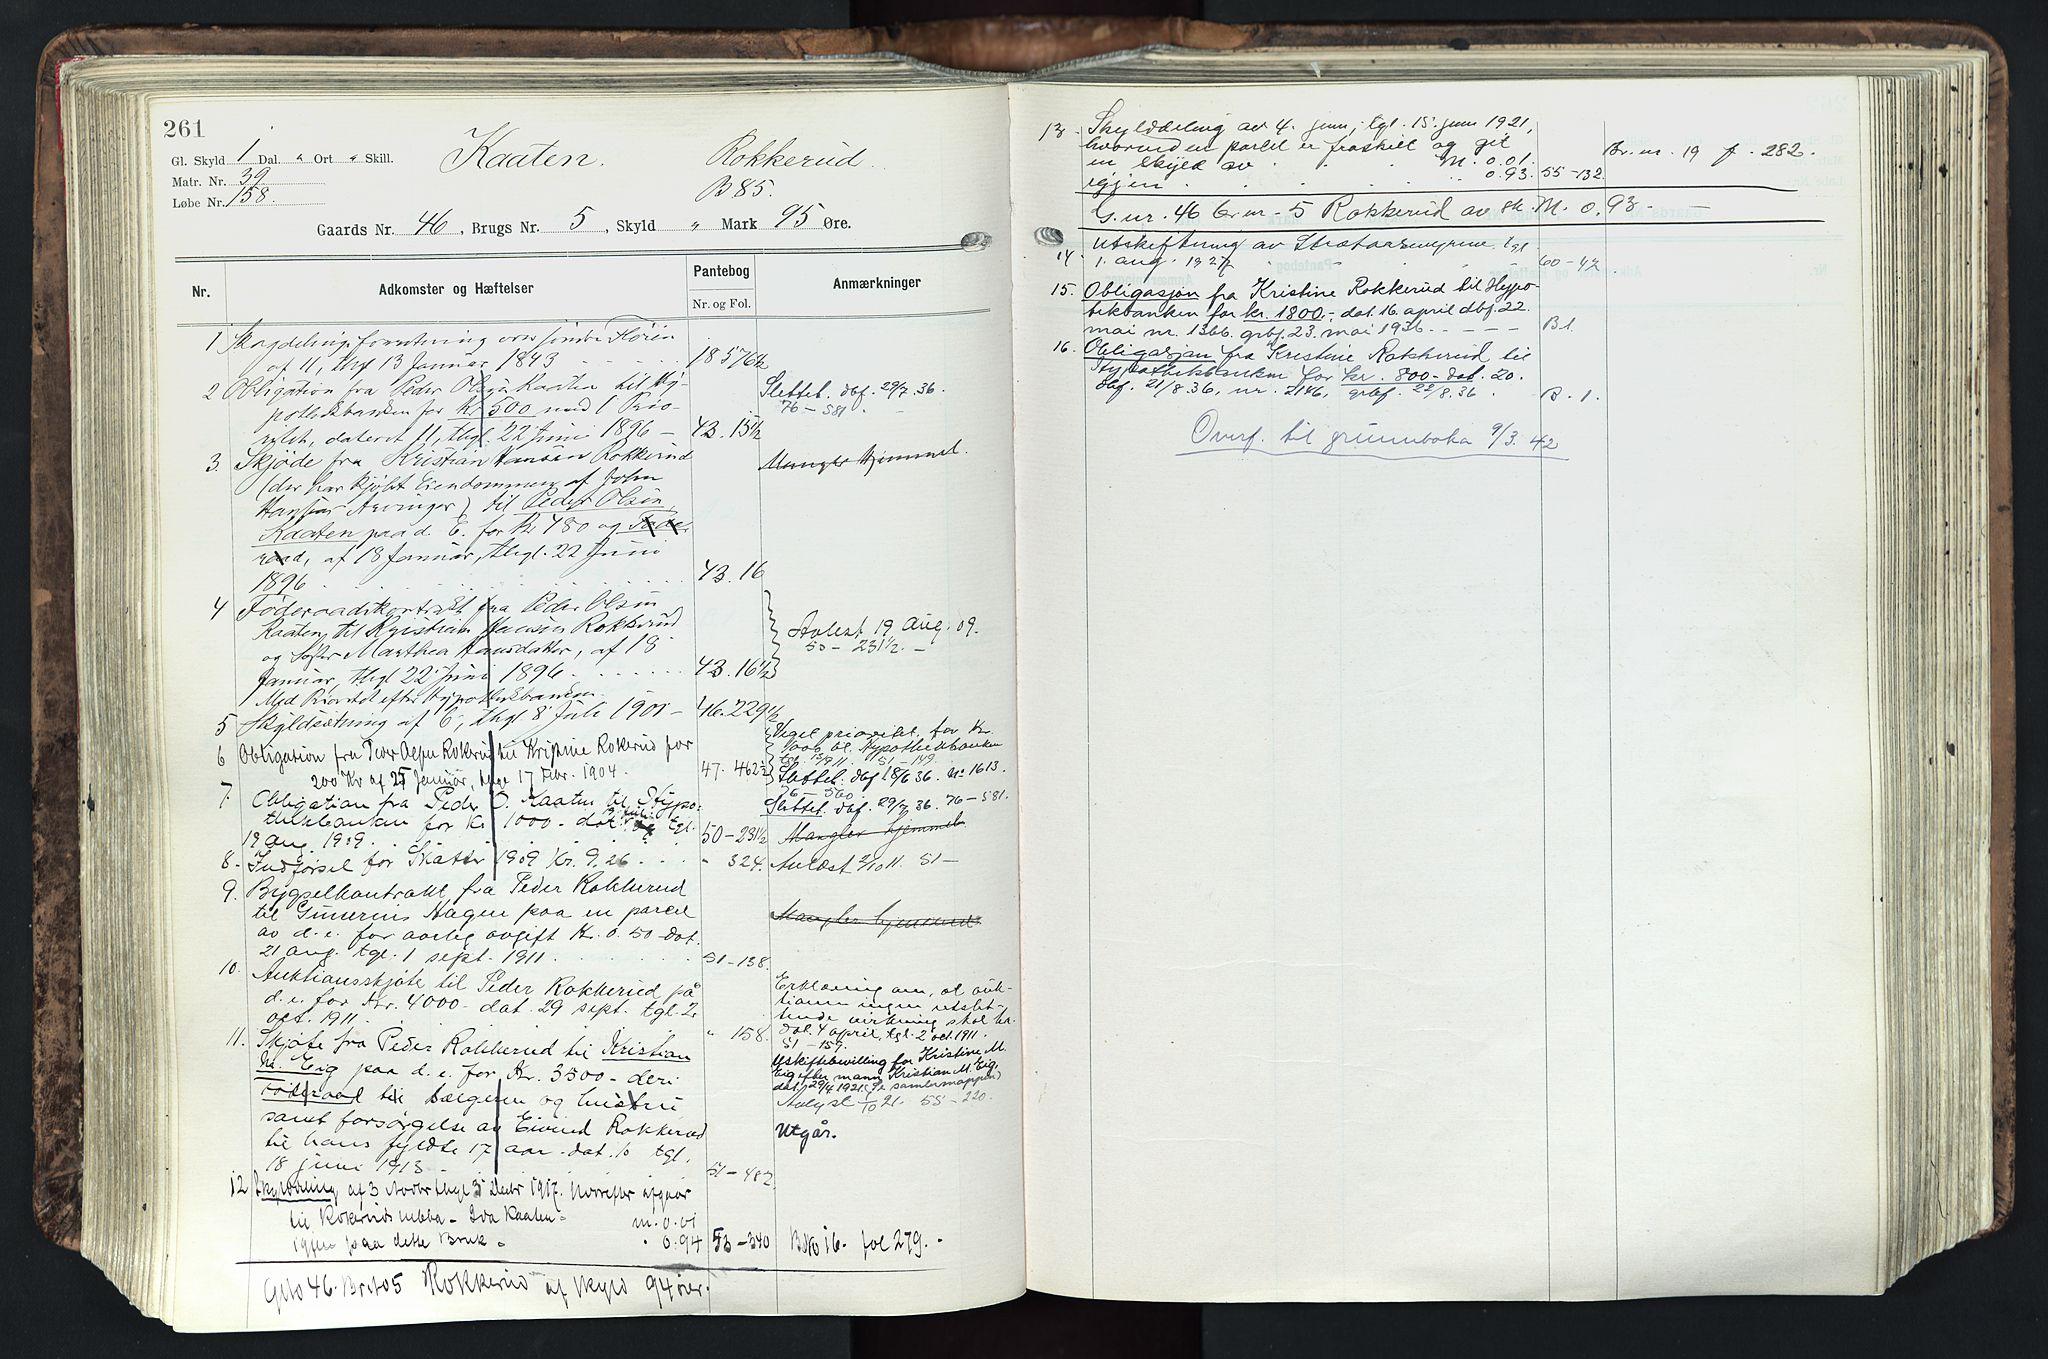 261
Gl. Skyld 1 Dal. " Ort " Skill.
Matr. Nr. 39
Løbe Nr. 158.
Kaaten. Rokkerud.
B 85.
Gaards Nr. 46, Brugs Nr. 5, Skyld " Mark 95 Øre.
Nr. Adkomster og Hæftelser Pantebog Anmærkninger
Nr. og Fol.
1 af 11, thgl 13 Januar 1843 18 576½
2 Obligation fra Peder Olsen Kaaten til Hy-
pothekbanken for Kr 500 med 1 Prio-
ritet, dateret 11, thgl. 22 Juni 1896 - 43. 15½
Slettet. dbf. 29/7. 36.
76 - 581
3. Skjøde fra Kristian Hansen Rokkerud
(der har kjøbt Eiendommen af John
Hansens Arvinger) til Peder Olsen
Kaaten paa d. E. for Kr 480 og Føde-
raad, af 18 Januar, thgl. 22 Juni
1896 43. 16
Mangler Hjemmel.
4 Føderaadskontrakt fra Peder Olsen
Kaaten til Kristian Hansen Rokkerud
og Marthea Hansdatter, af 18
Januar, thgl 22 Juni 1896 43. 16½
Med Prioritet efter Hypothekbanken
Avlest 19 Aug. 09.
50 - 231½. -
5 Skyldsætning af 6, thgl 8 Juli 1901 - 46. 229½
6 Obligation fra Peder Olsen Rokerud til Kristine Rokerud for
200 Kr af 25 Januar, thgl 17 Febr. 1904. 47. 462½
Veget prioritet for Kr.
1000 til Hypothekbanken
51 - 149.
Slettet. dbf 18/6 36. No 1613.
76 - 560
7. Obligation fra Peder O. Kaaten til Hypo-
thekbanken for Kr 1000 - dat. tgl.
19 aug. 1909. 50 - 231½
Slettet. dbf. 29/7 36. 76 - 581.
Mangler hjemmel
8. Indførsel for Skatter 1909 Kr. 9.26 " 324.
Avlæst 2/10 11. 51 -
9. Byggselkontrakt fra Peder Rokkerud
til Hagen paa en parcel
av d. e. for aarlig avgift Kr. 0.50 - dat.
21 aug. tgl. 1 sept. 1911 51 - 138.
Mangler hjemmel
10. Auktionsskjøte til Peder Rokkerud på
d. e. for Kr. 4000 - dat. 29 sept. tgl. 2
oct. 1911. " 158.
Erklæring om, at auk-
tionen ingen utslet-
tende virkning skal ha.
dat. 4 april, tgl. 2 oct. 1911.
51 - 159.
11. Skjøte fra Peder Rokkerud til Kristian
M. Eig paa d. e. for Kr. 3500 - deri
føderaad til sælgeren og hustru
samt forsørgelse av Eivind Rokkerud
til hans fyldte 17 aar - dat. 16 tgl.
18 juni 1913 51 - 482
Uskiftebevilling for Kristine M.
Eig efter mann Kristian M. Eig,
dat. 29/4 1921 (Se samlermappen)
Avlyst /10 21. 55 - 220.
Utgår.
12 Skylddeling af 3 Novbr thgl 3 Decbr 1917, hvorefter afgaar
til Rokerudslubba - Ida Kaaten - m. 0.01
igjen paa dette Bruk - " 0.94 53 - 340 BNo 16 - fol 279. -
GNo 46. BrNo 5 Rokkerud af skyld 94 ører.
13. Skylddeling av 4. juni, tgl. 15. juni 1921,
hvorved en parcel er fraskilt og git
en skyld av M. 0.01.
igjen 0.93. 55 - 132. Br. nr. 19 f. 282.
G. nr. 46 br. nr. 5 Rokkerud av sk. M. 0.93. -
14. Utskiftning av tgl
1. aug. 1927 60 - 42
15. Obligasjon fra Kristine Rokkerud til Hypo-
tekbanken for kr. 1800 - dat. 16. april dbf. 22.
mai nr. 1366. grbf. 23. mai 1936. B. 1.
16. Obligasjon fra Kristine Rokkerud til
Hypotekbanken for kr. 800 - dat. 20.
dbf. 21/8. 36, nr. 2186, grbf. 22/8. 36. B. 1.
Overf. til grunnboka 9/3. 42